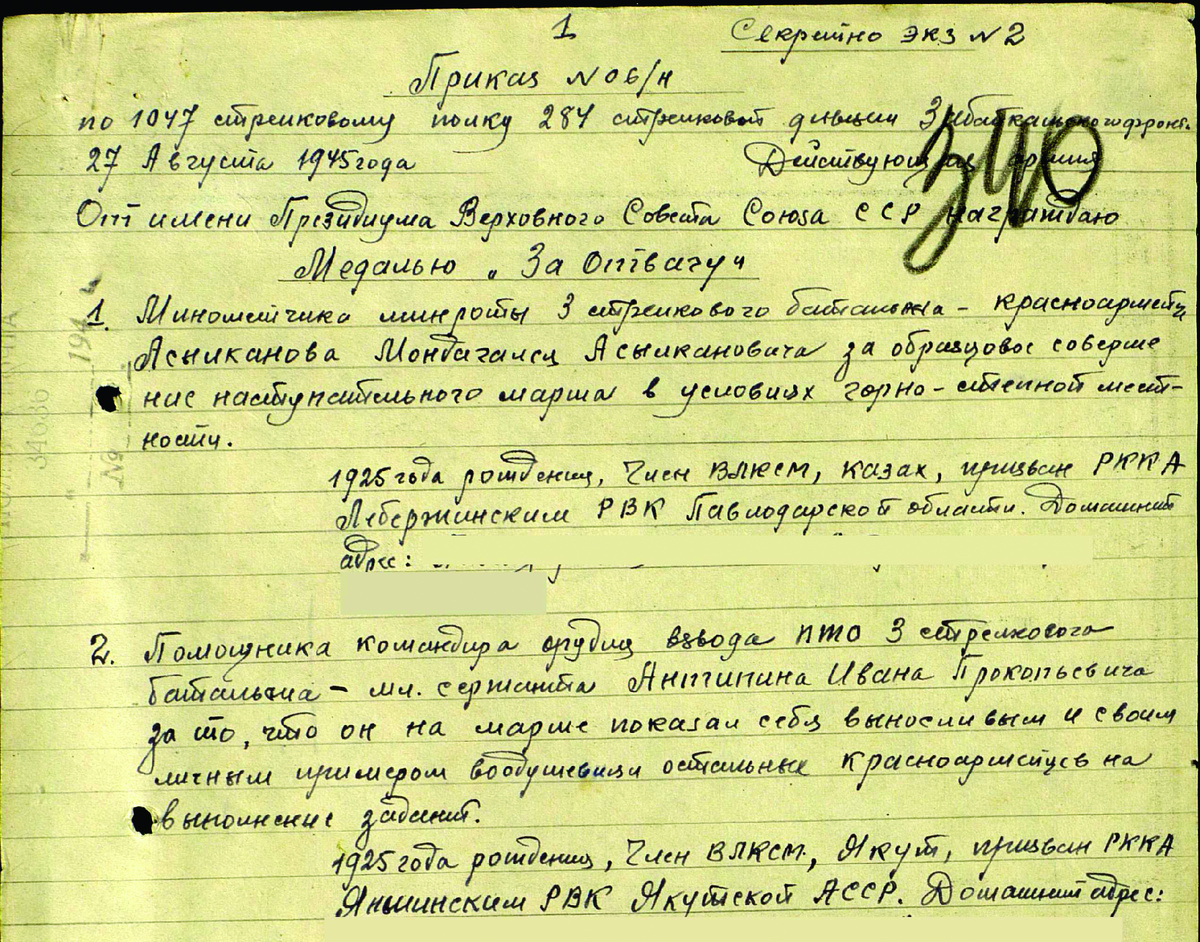 1
Секретно экз N 2
Приказ N 06/н
по 1047 стрелковому полку 284 стрелковой дивизии Забайкальского фронта.
27 Августа 1945 года Действующая армия
340
От имени Президиума Верховного Совета Союза ССР награждаю
Медалью „За Отвагу"
1. Минометчика минроты 3 стрелкового батальона - красноармейца
Асылканова Мондагалея Асылкановича за образцовое соверше
ние наступательного марша в условиях горно-степной мест-
ности.
1925 года рождения, Член ВЛКСМ, казах, призван РККА
Лебяжинским РВК Павлодарской области. Домашний
адрес:
2. Помощника командира орудия взвода ПТО 3 стрелкового
батальона - мл. сержанта Антипина Ивана Прокопьевича
за то, что он на марше показал себя выносливым и своим
личным примером воодушевлял остальных красноармейцев на
выполнение заданий.
1925 года рождения, Член ВЛКСМ, Якут, призван РККА
РВК Якутской АССР. Домашний адрес:
194
№
34686